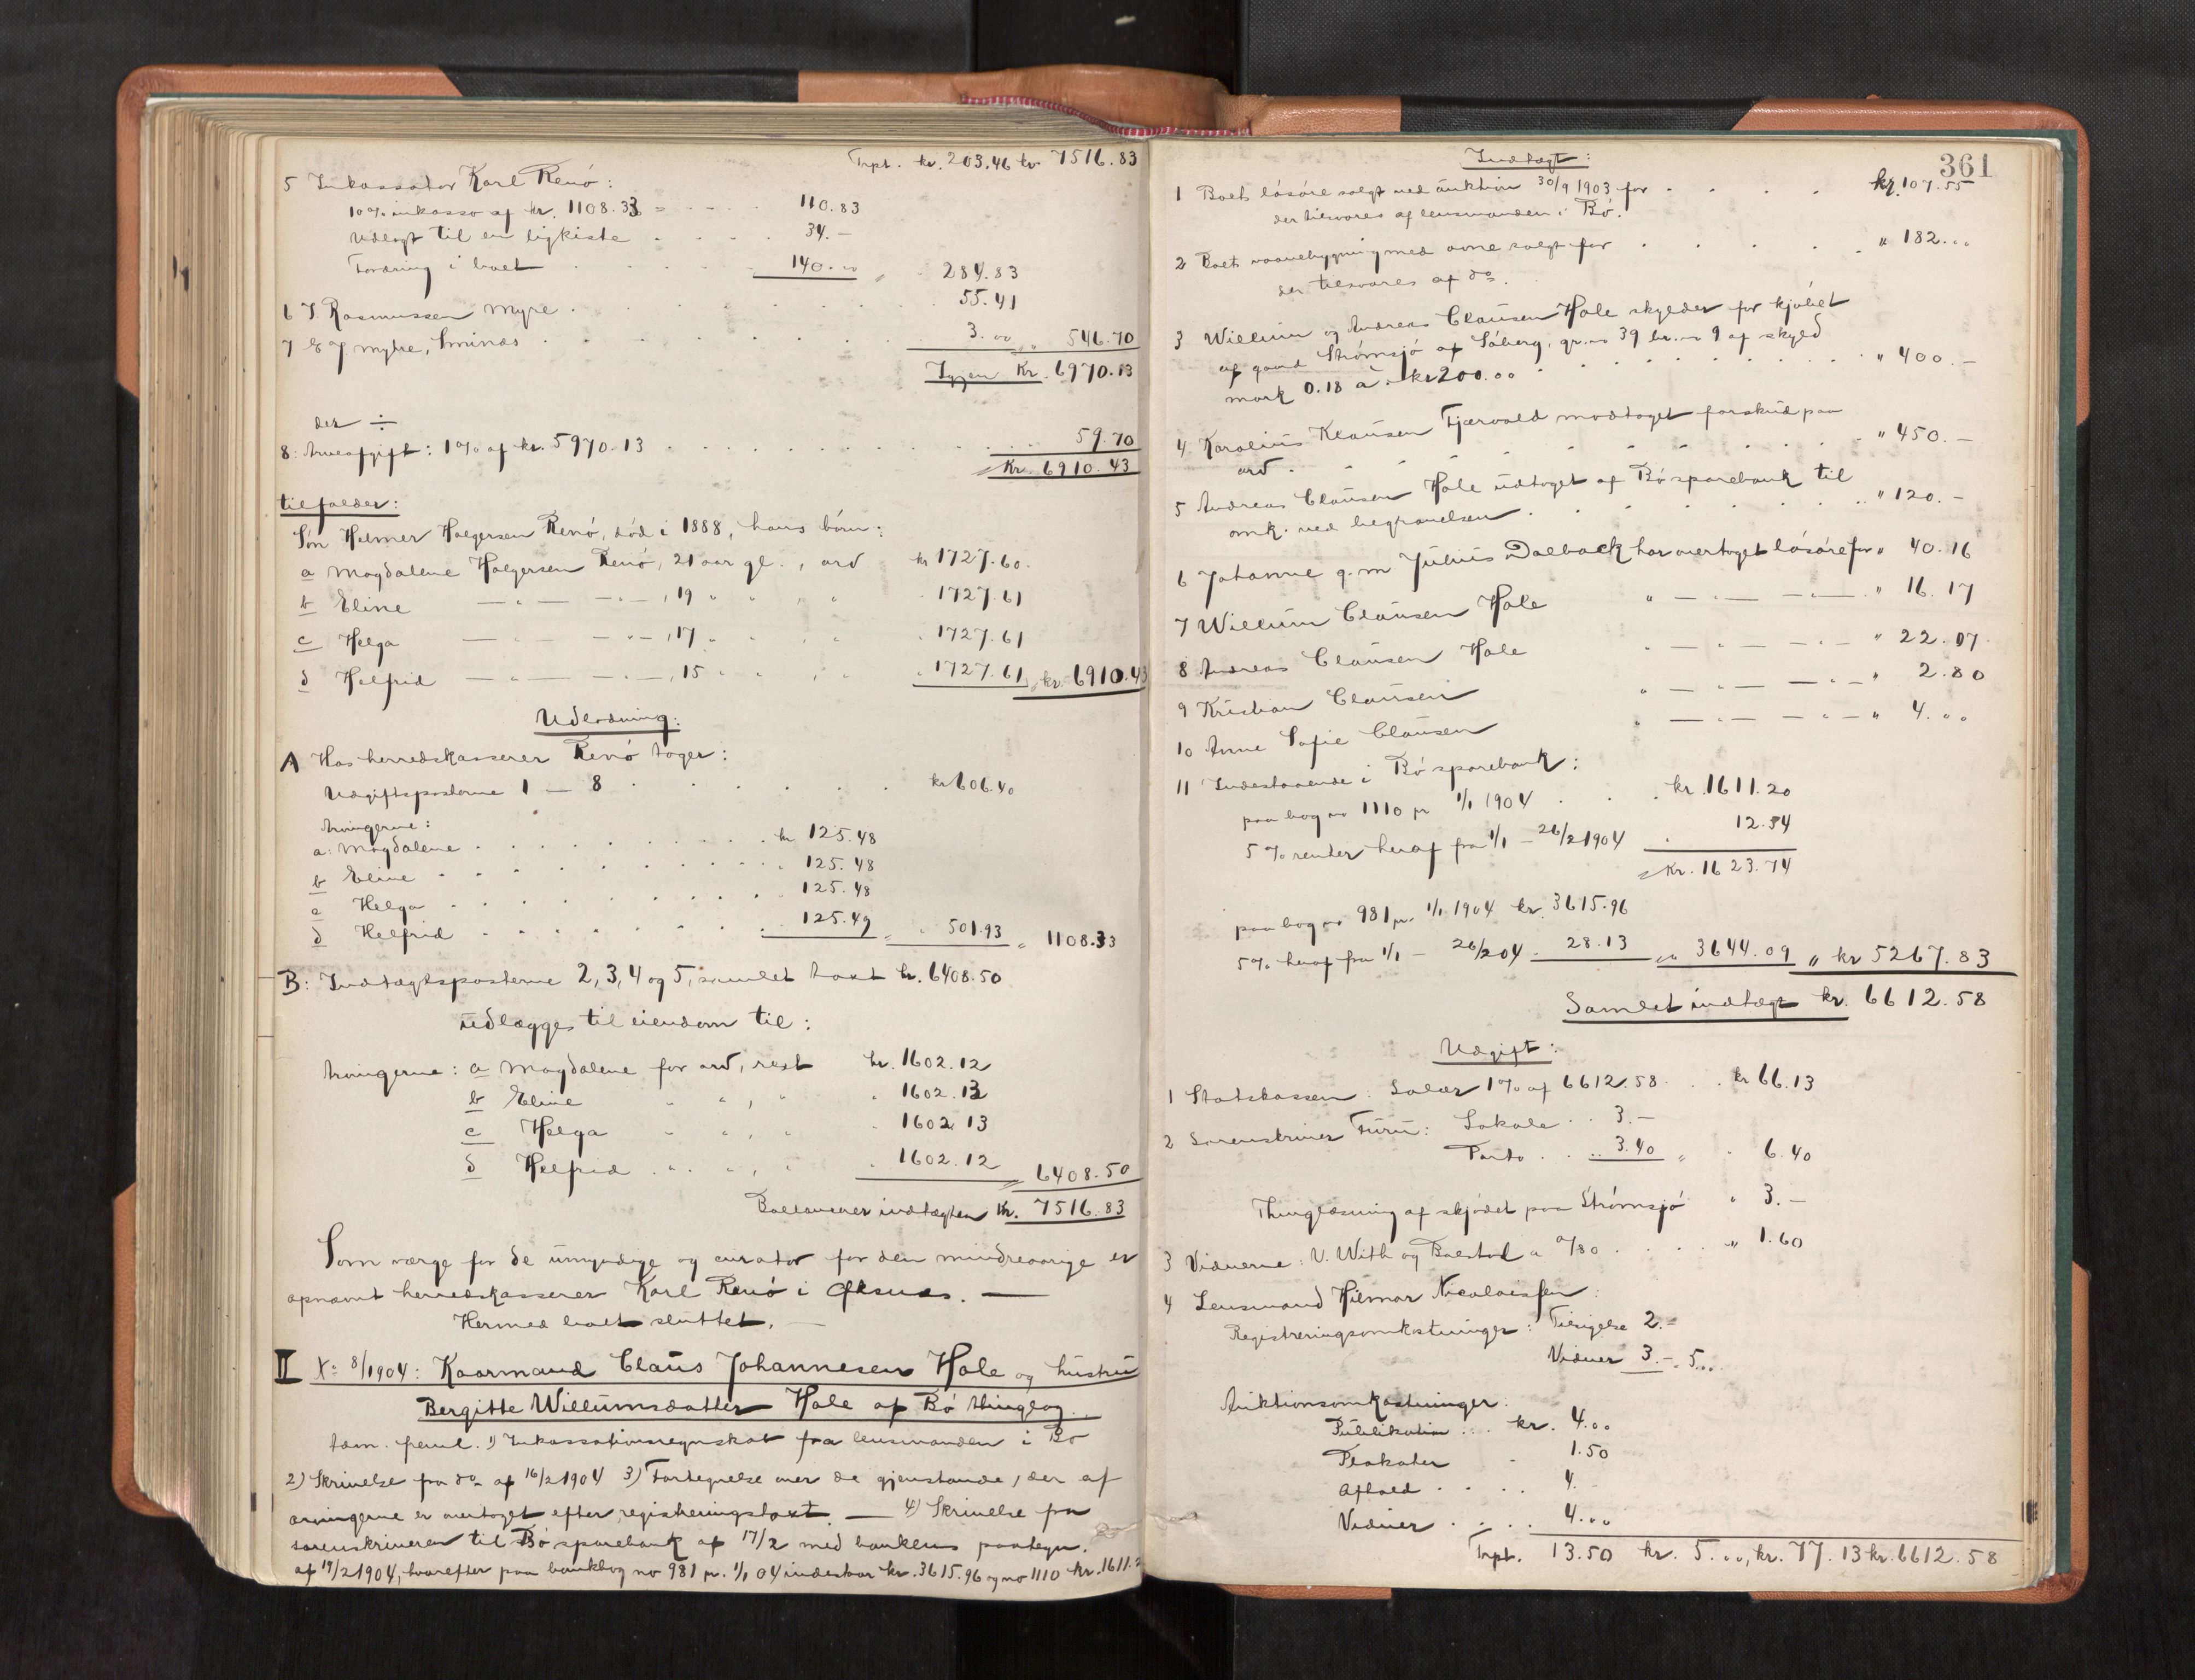 Trpt. kr. 203.46 kr. 7516.83
5 Inkassator Karl Renö:
10% inkasso af kr. 1108.33 = 110.83
Udlagt til en ligkiste 34.—
Fordring i boet 140.00 " 284.83
6 J. Rasmussen Myre 55.41
7 E af myhre, Sminæs 3.00 " 546.70
Igjen Kr. 6970.13
der ÷
8: Arveafgift: 1% af kr. 5970.13 59.70
Kr. 6910.43
tilfalder:
Søn Helmer Holgersen Renö, död i 1888, hans börn:
a Magdalene Holgersen Renö, 21 aar gl., arv kr 1727.60.
b Eline —"— —"—, 19 " " , " " 1727.61
c Helga —"— —"—, 17 " " , " " 1727.61
d Helfrid —"— —"—, 15 " " , " " 1727.61 kr. 6910.43
Udlodning:
A Hos herredskasserer Renö tages:
Udgiftsposterne 1 — 8 kr 606.40
Arvingerne:
a: Magdalene kr 125.48
b Eline " 125.48
c Helga " 125.48
d Helfrid " 125.49 " 501.93 " 1108.33
B: Indtægtsposterne 2, 3, 4 og 5, samlet taxt kr. 6408.50
udlægges til eiendom til:
Arvingerne: a Magdalene for arv, rest kr. 1602.12
b Eline " " , " " 1602.13
c Helga " " , " " 1602.13
d Helfrid " " , " " 1602.12 6408.50
Ballancerer indtægten Kr. 7516.83
Som værge for de umyndige og curator for den mindreaarige er
opnævnt herredskasserer Karl Renö i Øksnes. —
Hermed boet sluttet. —
II No 8/1904: Kaarmand Claus Johannesen Hole og hustru
Bergitte Willumsdatter Hole af Bö thinglag.
Dem. freml. 1) Inkassationsregnskab fra lensmanden i Bö
2) Skrivelse fra do af 16/2 1904 3) Fortegnelse over de gjenstande, der af
arvingerne er overtaget efter registreringstaxt. — 4) Skrivelse fra
sorenskriveren til Bö sparebank af 17/2 med bankens paategn.
af 19/2 1904, hvorefter paa bankbog no 981 pr. 1/1 04 indestaar kr. 3615.96 og no 1110 kr. 1611.2
361
Indtægt:
1 Boets lösöre solgt ved auktion 30/9 1903 for kr. 107.55
der tilsvares af lensmanden i Bö.
2 Boets vaanebygning med ovne solgt for " 182.00
der tilsvares af do.
3 Willum og Andreas Clausen Hole skylder for kjöbet
af gaard Strömsjö af Söberg, gr. no 39 br. no 9 af skyld
mark 0.18 a kr 200.00 " 400.—
4 Karolius Klausen Fjærvold modtaget forskud paa
arv " 450.—
5 Andreas Clausen Hole udtaget af Bö sparebank til
omk. ved begravelsen " 120.—
6 Johanne g. m. Julius Dalback har overtaget lösöre for " 40.16
7 Willum Clausen Hole " —"— —"— " 16.17
8 Andreas Clausen Hole " —"— —"— " 22.07
9 Kristian Clausen " —"— —"— " 2.80
10 Anne Sofie Clausen " —"— —"— " 4.00
11 Indestaaende i Bö sparebank:
paa bog no 1110 pr 1/1 1904 kr. 1611.20
5% renter heraf fra 1/1 — 26/2 1904 12.54
Kr. 1623.74
paa bog no 981 pr. 1/1 1904 kr. 3615.96
5% heraf fra 1/1 — 26/2 04 28.13 " 3644.09 " kr 5267.83
Samlet indtægt kr. 6612.58
Udgift:
1 Statskassen: Salær 1% af 6612.58 kr 66.13
2 Sorenskriver Furu: Lokale 3.—
Porto 3.40 " " 6.40
Thinglæsning af skjödet paa Strömsjö " 3.—
3 Vidnerne: V. With og Bolstad a 0/80 " 1.60
4 Lensmand Hilmar Nicolaissen:
Registreringsomkostninger: Tilsigelse 2.—
Vidner 3.— 5.00
Auktionsomkostninger:
Publikation kr. 4.00
Plakater " 1.50
Afhold 4.
Vidner 4.00
Trpt. 13.50 kr. 5.00, kr. 77.13 kr. 6612.58